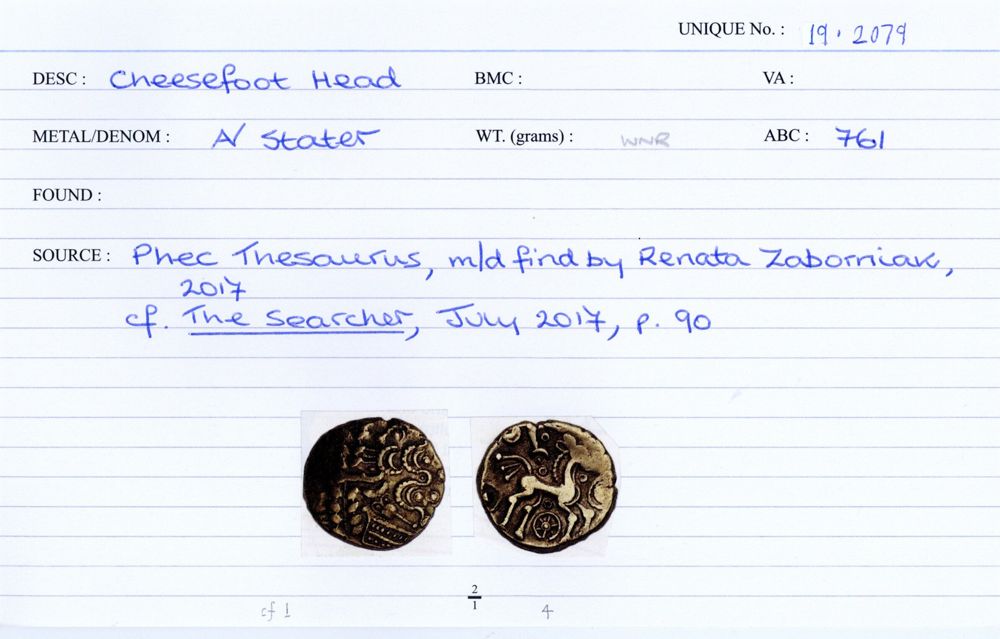 UNIQUE No. : 19 · 2079
DESC : Cheesefoot Head BMC : VA :
METAL/DENOM : A/ Stater WT. (grams) : WNR ABC : 761
FOUND :
SOURCE : Phec Thesaurus, m/d find by Renata Zaborniak,
2017
cf. The Searcher, July 2017, p. 90
2
1
cf 1 4